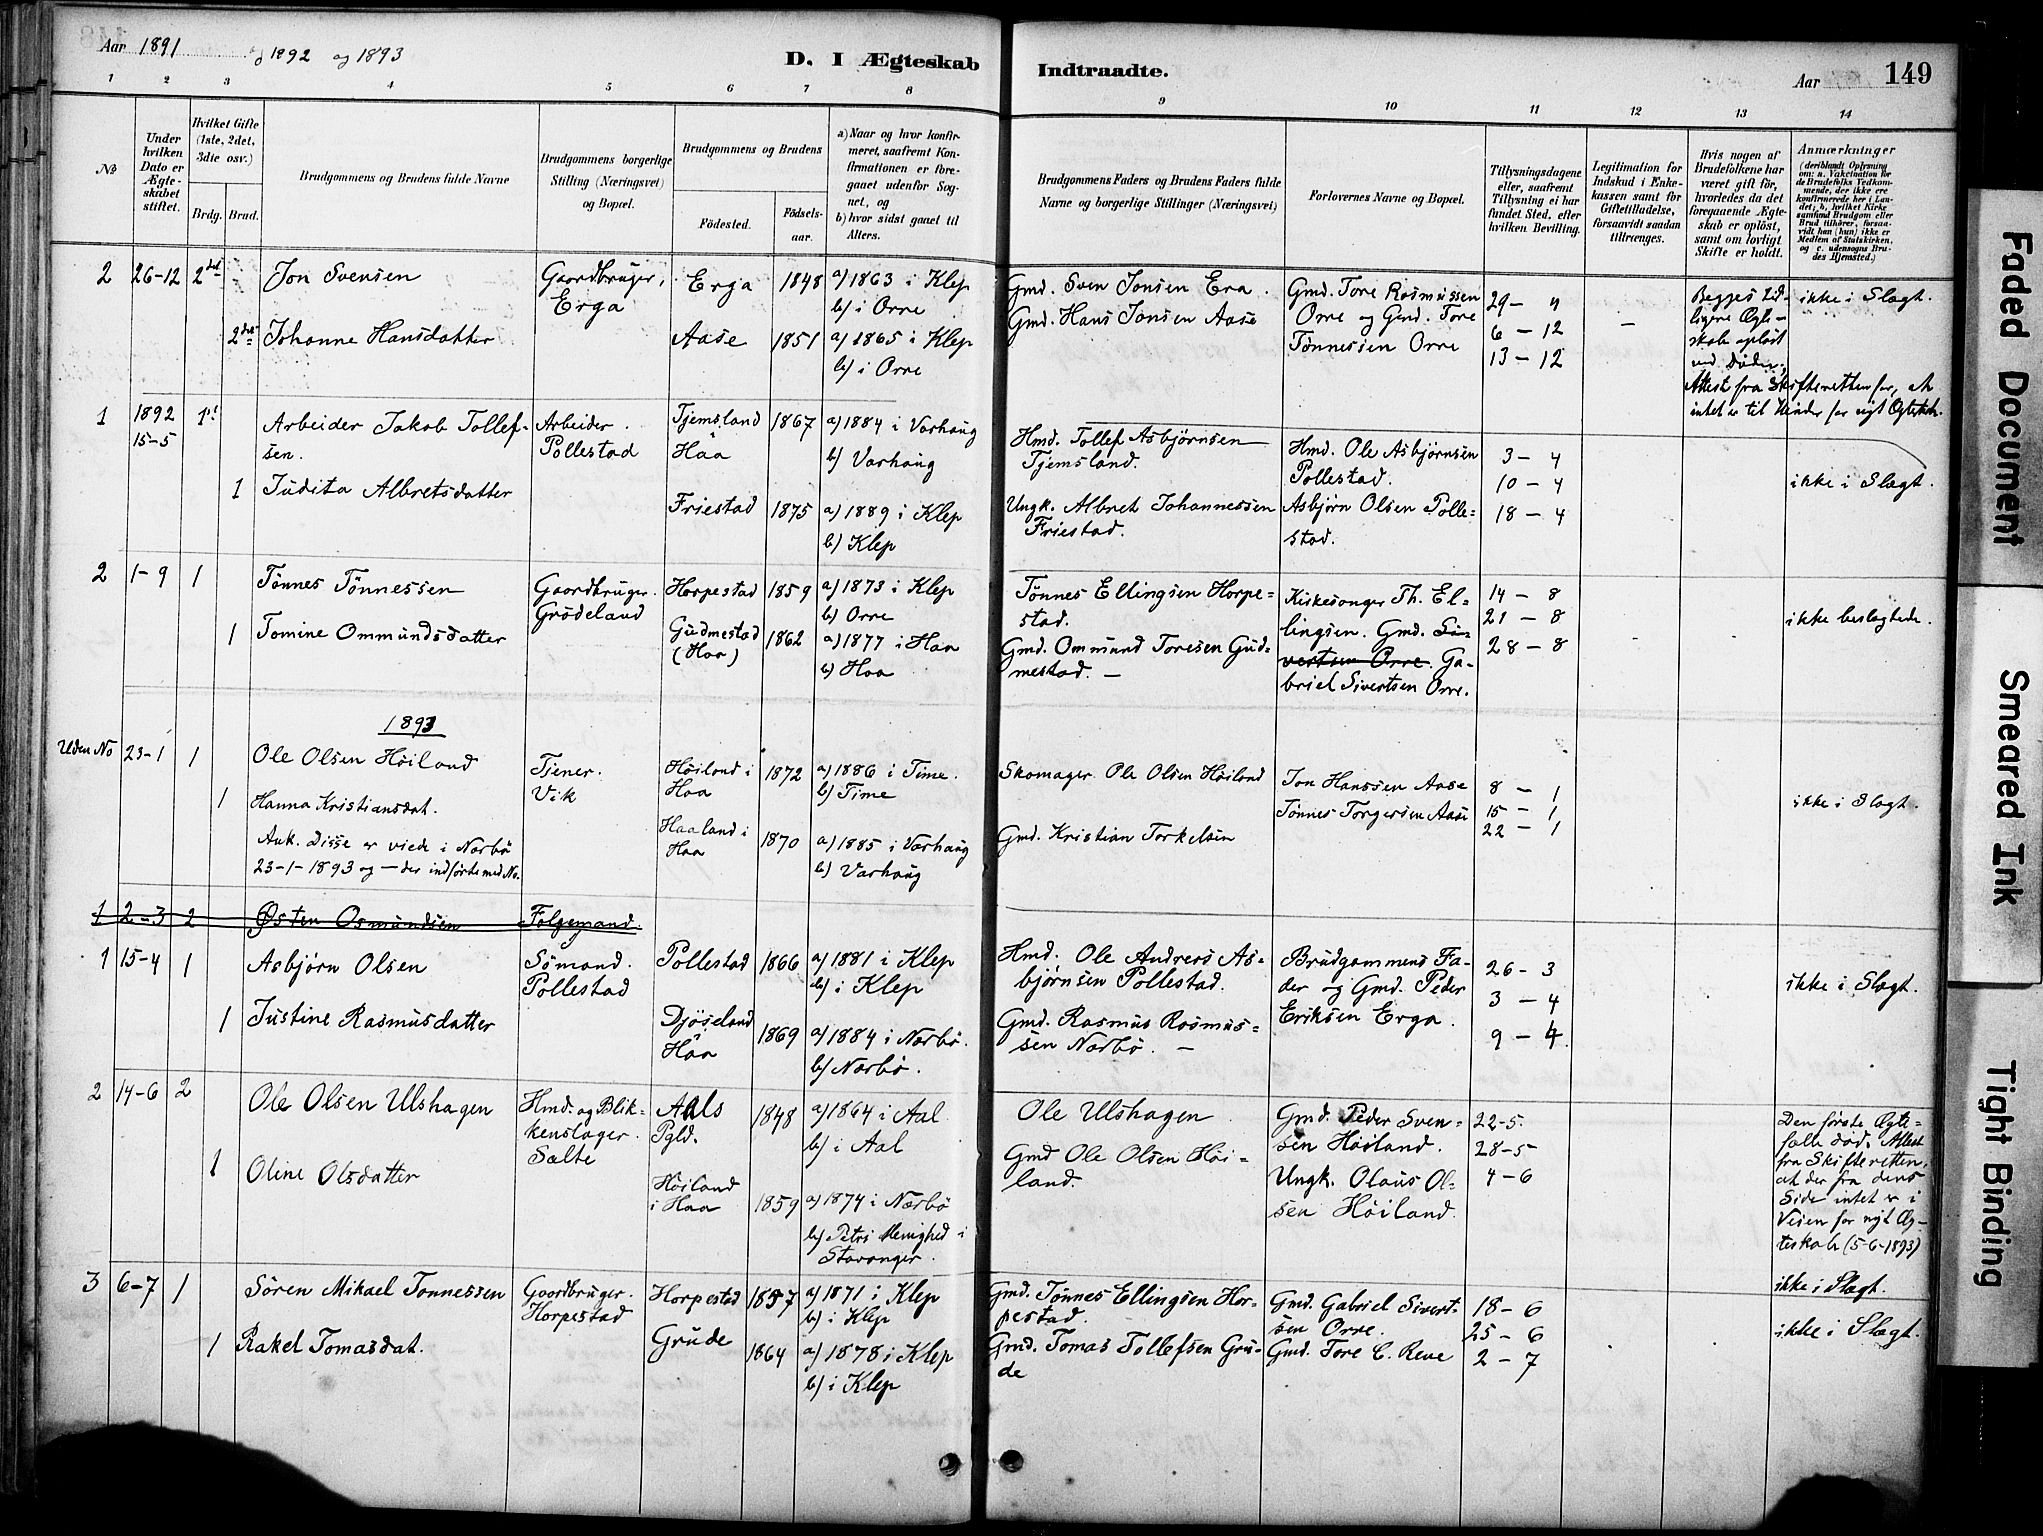 Aar 1891 og 1892 og 1893
D. I Ægteskab
Indtraadte.
Aar 149
1 2 3 4 5 6 7 8 9 10 11 12 13 14
No
Under hvilken Dato er Ægteskabet stiftet.
Hvilket Gifte (1ste, 2det, 3die osv.)
Brdg. Brud.
Brudgommens og Brudens fulde Navne
Brudgommens borgerlige Stilling (Næringsvei) og Bopæl.
Brudgommens og Brudens
Fødested.
Fødselsaar.
a) Naar og hvor konfirmeret, saafremt Konfirmationen er foregaaet udenfor Sognet, og
b) hvor sidst gaaet til Alters.
Brudgommens Faders og Brudens Faders fulde Navne og borgerlige Stillinger (Næringsvei)
Forlovernes Navne og Bopæl.
Tillysningsdagene eller, saafremt Tillysning ei har fundet Sted, efter hvilken Bevilling.
Legitimation for Indskud i Enkekassen samt for Giftetilladelse, forsaavidt saadan tiltrænges.
Hvis nogen af Brudefolkene har været gift før, hvorledes da det foregaaende Ægteskab er opløst, samt om lovligt Skifte er holdt.
Anmærkninger
(deriblandt Oplysning om: a. Vakcination for de Brudefolks Vedkommende, der ikke ere konfirmerede her i Landet; b. hvilket Kirkesamfund Brudgom eller Brud tilhører, forsaavidt han (hun) ikke er Medlem af Statskirken, og c. udensogns Brudes Hjemsted.)
2 26-12 2det Jon Svensen Gaardbruger, Erga Erga 1848 a) 1863 i Klep b) i Orre
2det Johanne Hansdatter Aase 1851 a) 1865 i Klep b) i Orre
Gmd. Sven Jonsen Era.
Gmd. Hans Jonsen Aase
Gmd. Tore Rasmussen
Orre og Gmd. Tore
Tønnessen Orre
29 - 11
6 - 12
13 - 12
-
Begges tid-
ligere Ægte-
skab opløst
ved Døden,
Attest fra Skifteretten for, at
intet er til Hinder for nyt Ægteskab.
ikke i Slægt.
1 1892 15-5 1st Arbeider Jakob Tollef-
sen. Arbeider. Pollestad Tjemsland Håa 1867 a) 1884 i Varhaug b) Varhaug
1 Judita Albretsdatter Friestad 1875 a) 1889 i Klep b) Klep
Hmd. Tollef Asbjørnsen
Tjemsland.
Ungk. Albret Johannessen
Friestad.
Hmd. Ole Asbjørnsen
Pollestad.
Asbjørn Olsen Polle-
stad.
3 - 4
10 - 4
18 - 4
ikke i Slægt.
2 1-9 1 Tønnes Tønnessen Gaardbruger. Grødeland Horpestad 1859 a) 1873 i Klep b) Orre
1 Tomine Ommundsdatter Gudmestad (Haa) 1862 a) 1877 i Haa b) Haa
Tønnes Ellingsen Horpe-
stad.
Gmd. Ommund Toresen Gud-
mestad. -
Kirkesanger Th. El-
lingsen. Gmd. Si-
vertsen Orre. Ga-
briel Sivertsen Orre.
14 - 8
21 - 8
28 - 8
ikke beslægtede.
1893
Uden No 23-1 1 Ole Olsen Høiland Tjener. Vik Høiland i Haa 1872 a) 1886 i Time. b) Time
1 Hanna Kristiansdat. Haaland i Haa 1870 a) 1885 i Varhaug b) Varhaug
Ank. Disse er viede i Nærbø
23-1-1893 og - der indførte med No.
Skomager. Ole Olsen Høiland
Gmd. Kristian Torkelsen
Jon Hanssen Aase
Tønnes Torgersen Aase
8 - 1
15 - 1
22 - 1
ikke i Slægt.
1 2-3 2 Østen Osmundsen Følgemand.
1 15-4 1 Asbjørn Olsen Sømand. Pollestad Pollestad 1866 a) 1881 i Klep b) i Klep
1 Justine Rasmusdatter Djøseland Håa 1869 a) 1884 i Nærbø. b) Nærbø.
Hmd. Ole Andreas As-
bjørnsen Pollestad.
Gmd. Rasmus Rasmus-
sen Nærbø. -
Brudgommens Fa-
der og Gmd. Peder
Eriksen Erga.
26 - 3
3 - 4
9 - 4
ikke i Slægt.
2 14-6 2 Ole Olsen Ulshagen Hmd. og Blik-
kenslager. Salte Aals Pgld. 1848 a) 1864 i Aal b) i Aal
1 Oline Olsdatter Høiland i Haa 1859 a) 1874 i Nærbø b) Petri Menighed i Stavanger.
Ole Ulshagen
Gmd Ole Olsen Høi-
land.
Gmd. Peder Sven-
sen Høiland.
Ungk. Olaus Ol-
sen Høiland.
22-5.
28-5
4-6
Den første Ægte-
fælle død. Attest
fra Skifteretten,
at der fra dens
Side intet er i
Veien for nyt Æg-
teskab (5-6-1893)
ikke i Slægt.
3 6-7 1 Søren Mikael Tønnessen Gaardbruger. Horpestad Horpestad 1857 a) 1871 i Klep b) i Klep
1 Rakel Tomasdat. Grude 1864 a) 1878 i Klep b) i Klep
Gmd. Tønnes Ellingsen Hor-
pestad.
Gmd. Tomas Tollefsen Gru-
de
Gmd. Gabriel Sivert-
sen Orre.
Gmd. Tore C. Reve
18 - 6
25 - 6
2 - 7
ikke i Slægt.
Faded Document
Smeared Ink
Tight Binding